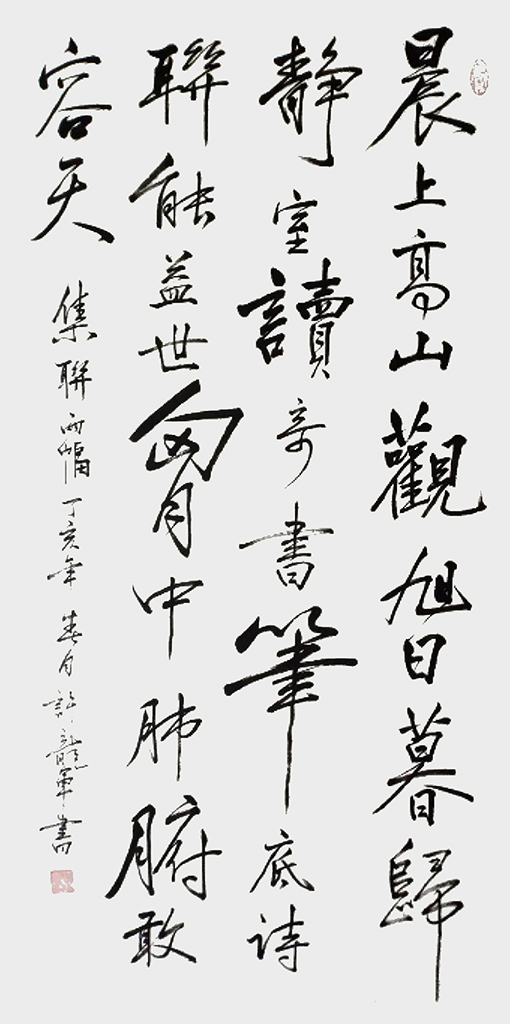 晨上高山觀旭日暮歸
靜室讀奇書筆底詩
聯能益世胷中肺腑敢
容天
集聯兩幅丁亥年春月許龍軍書